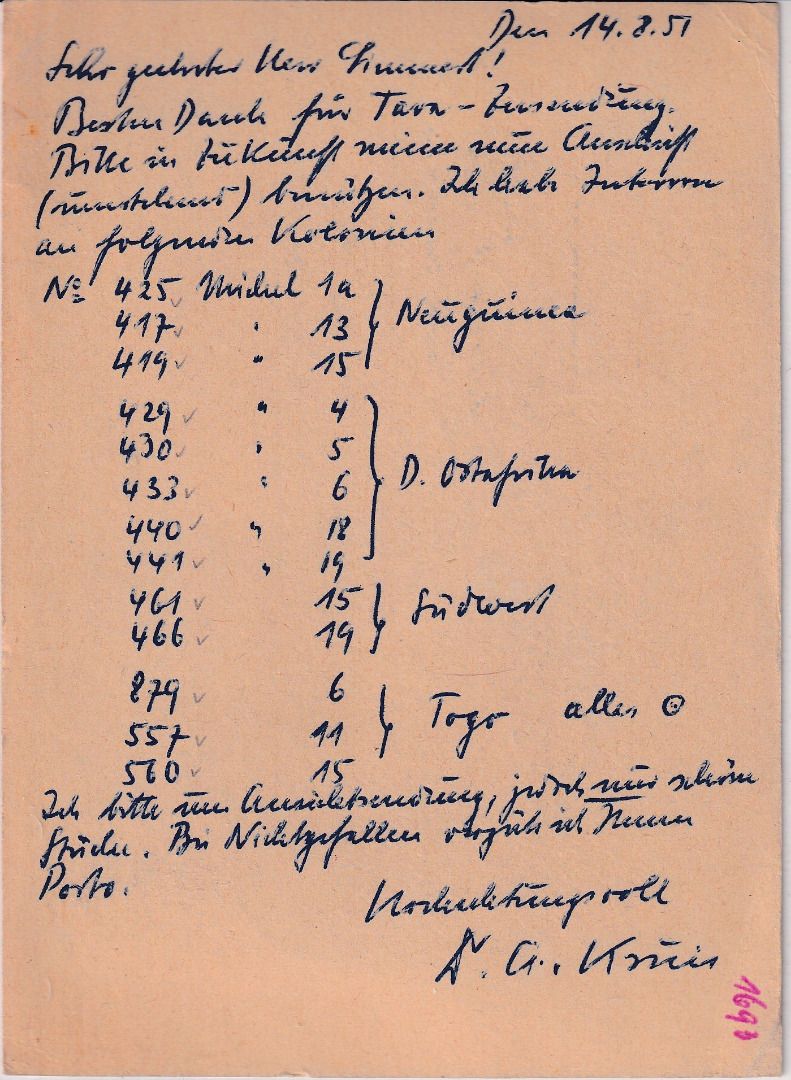 Den 14.8.51
Sehr geehrter Herr
Besten Dank für Tara-Zusendung.
Bitte in Zukunft meine neue Anschrift
(umstehend) benützen. Ich habe Interesse
an folgenden Kolonien
No 425 Michel 1a } Neuguinea
417 " 13
419 " 15
429 " 4
430 " 5
433 " 6 } D. Ostafrika
440 " 18
441 " 19
461 15 } Südwest
466 19
879 6
557 11 } Togo alles ⊙
560 15
Ich bitte um Ansichtsendung, jedoch nur schöne
Stücke. Bei Nichtgefallen vergüte ich Ihnen
Porto.
Hochachtungsvoll
Dr. A. Kruis